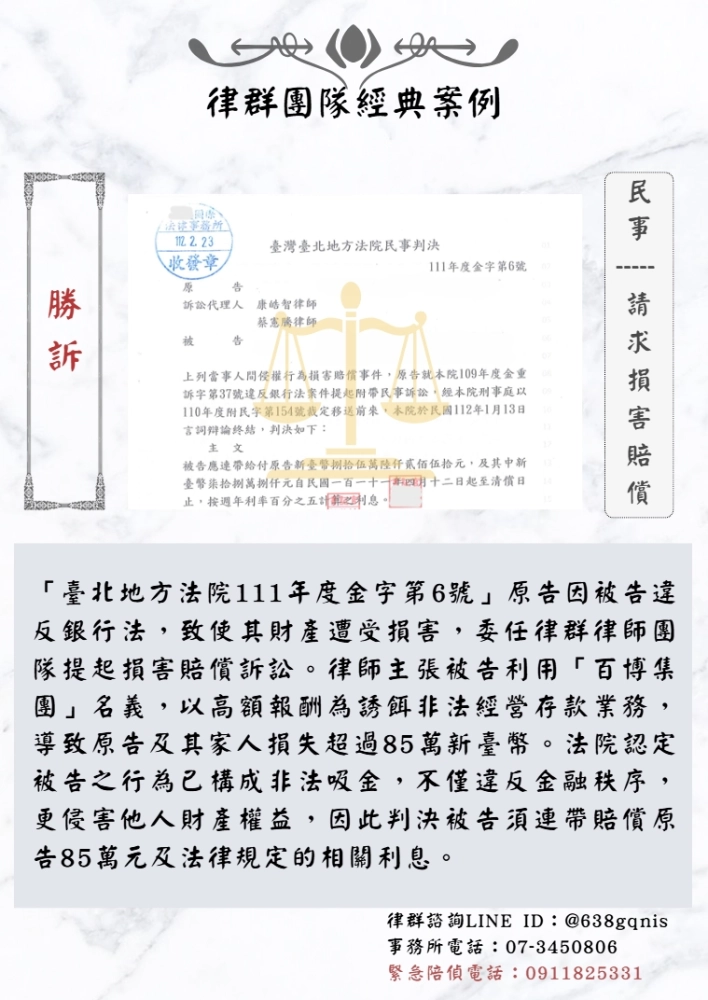 律群團隊經典案例
勝訴
民事-----請求損害賠償
法律事務所
112.2.23
收發章
臺灣臺北地方法院民事判決
111年度金字第6號
原告
訴訟代理人 康皓智律師
蔡憲騰律師
被告
上列當事人間侵權行為損害賠償事件，原告就本院109年度金重
訴字第37號違反銀行法案件提起附帶民事訴訟，經本院刑事庭以
110年度附民字第154號裁定移送前來，本院於民國112年1月13日
言詞辯論終結，判決如下：
主文
被告應連帶給付原告新臺幣捌拾伍萬陸仟貳佰伍拾元，及其中新
臺幣柒拾捌萬捌仟元自民國一百一十一年四月十二日起至清償日
止，按週年利率百分之五計算之利息。
「臺北地方法院111年度金字第6號」原告因被告違
反銀行法，致使其財產遭受損害，委任律群律師團
隊提起損害賠償訴訟。律師主張被告利用「百博集
團」名義，以高額報酬為誘餌非法經營存款業務，
導致原告及其家人損失超過85萬新臺幣。法院認定
被告之行為已構成非法吸金，不僅違反金融秩序，
更侵害他人財產權益，因此判決被告須連帶賠償原
告85萬元及法律規定的相關利息。
律群諮詢LINE ID：@638gqnis
事務所電話：07-3450806
緊急陪偵電話：0911825331